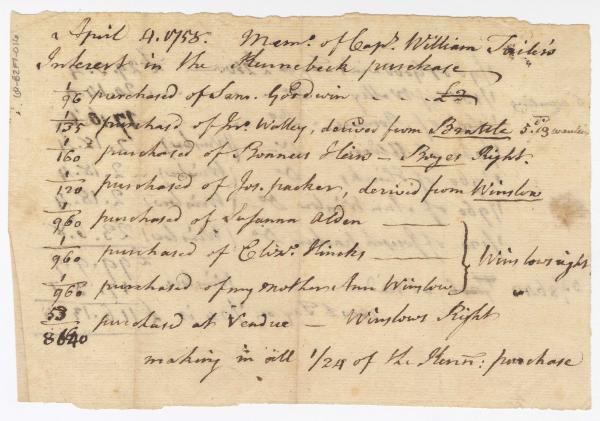 April 4. 1758. Memo. of Capt. William Tailer's
Interest in the Kennebeck purchase
1/96 purchased of Sam. Goodwin
1/135 purchased of Jno. Wolley, derived from Brattle
1/160 purchased of Bonners Heirs – Boyes Right.
1/120 purchased of Jos. packer, derived from Winslow
1/960 purchased of Susanna Alden
1/960 purchased of Elizr. Hincks
Winslows right
1/960 purchased of my mother Ann Winslow
53/8640 purchased at Vendue – Winslows Right
making in all 1/24 of the Kenn: purchase